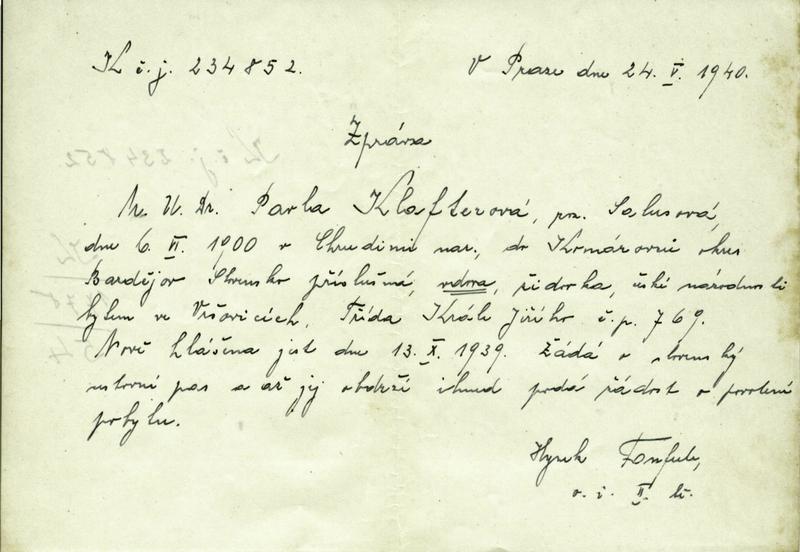 K č. j. 234852.
V Praze dne 24. V. 1940.
Zpráva
M. U. Dr. Pavla Klafterová, roz. Salusová,
dne 6. VI. 1900 v Chrudimi nar., do Komárovic okres
Bardějov Slovensko příslušná, vdova, židovka, české národnosti
bytem ve Vršovicích, Třída Krále Jiřího č. p. 769.
Nově hlášena jest dne 13. X. 1939. Žádá o slovenský
cestovní pas a až jej obdrží ihned podá žádost o povolení
pobytu.
Hynek
II. tř.